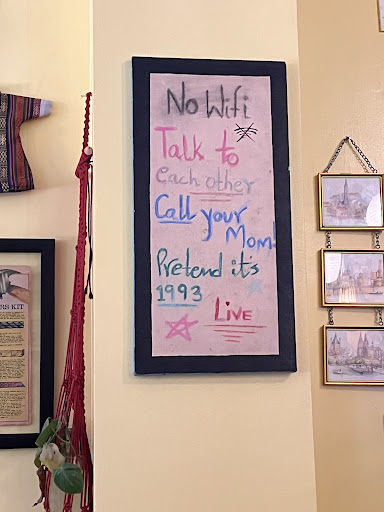 No Wifi
Talk to
Each other
Call your
Mom!
Pretend it's
1993
Live
RS KIT